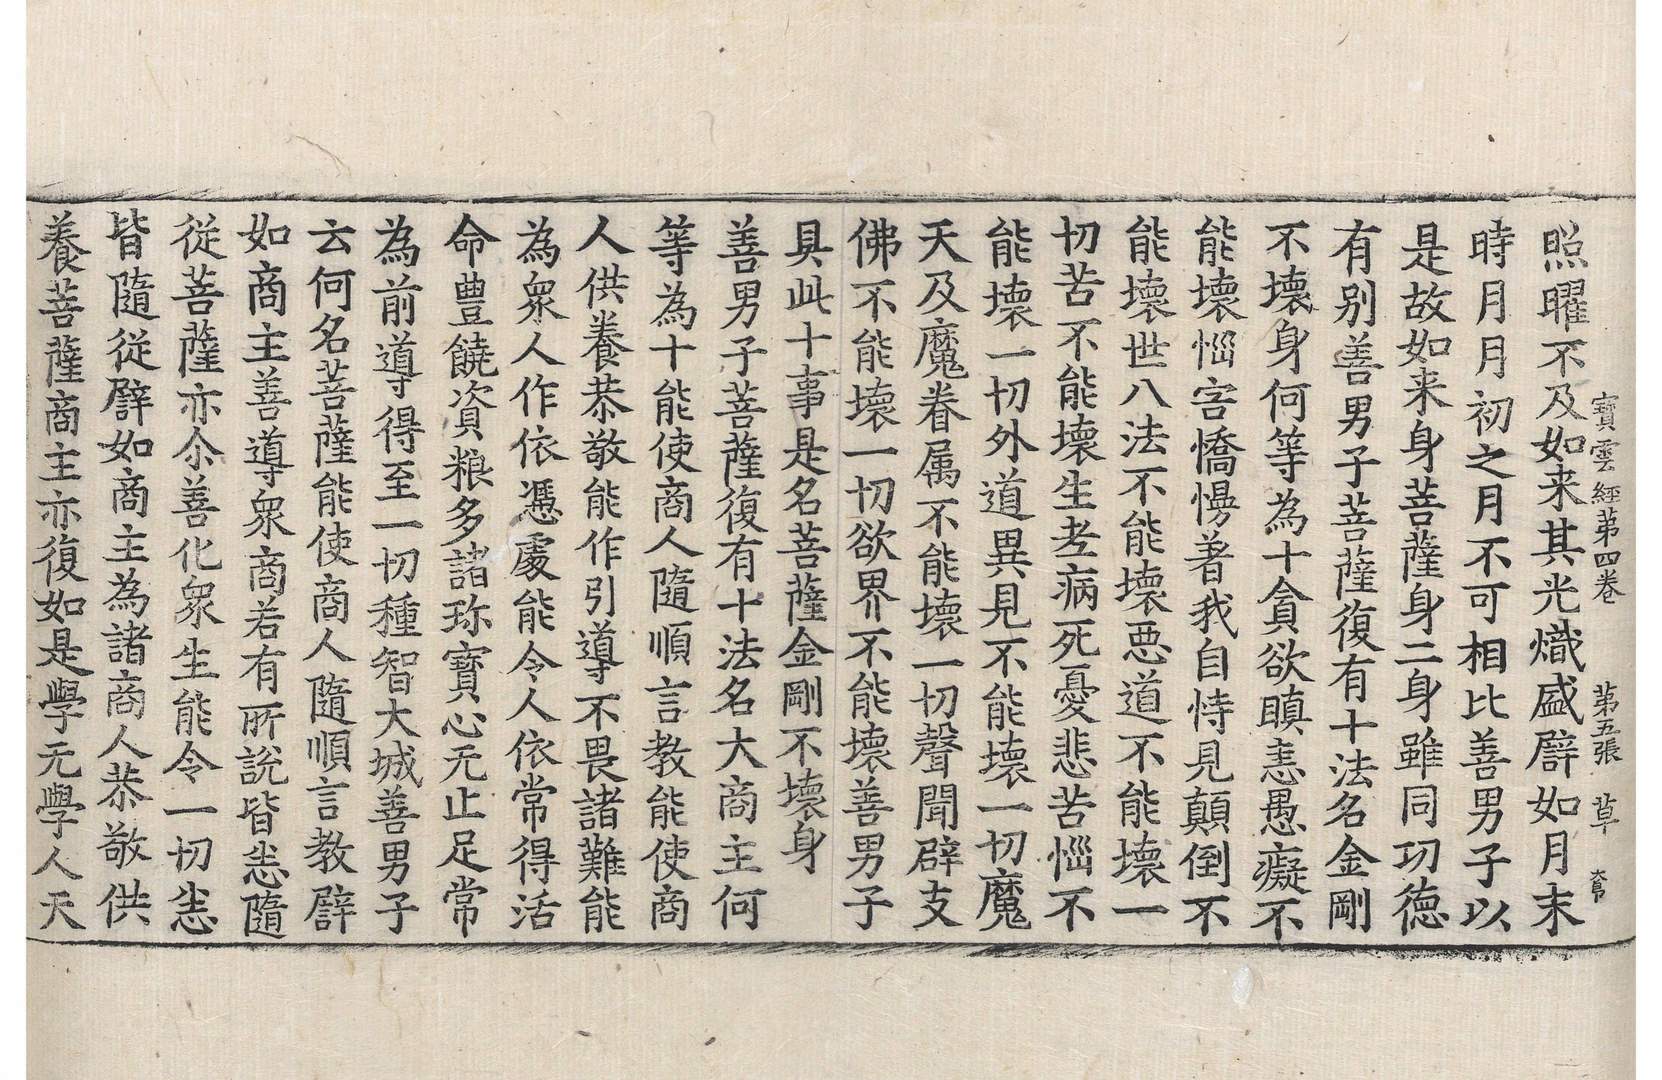 寶雲經第四卷　第五張　草
照曜不及如来其光熾盛譬如月末
時月月初之月不可相比善男子以
是故如来身菩薩身二身雖同功德
有别善男子菩薩復有十法名金剛
不壞身何等為十貪欲瞋恚愚癡不
能壞惱害憍慢著我自恃見顛倒不
能壞世八法不能壞惡道不能壞一
切苦不能壞生老病死憂悲苦惱不
能壞一切外道異見不能壞一切魔
天及魔眷属不能壞一切聲聞辟支
佛不能壞一切欲界不能壞善男子
具此十事是名菩薩金剛不壞身
善男子菩薩復有十法名大商主何
等為十能使商人隨順言教能使商
人供養恭敬能作引導不畏諸難能
為衆人作依憑處能令人依常得活
命豊饒資粮多諸珎寶心无止足常
為前導得至一切種智大城善男子
云何名菩薩能使商人隨順言教譬
如商主善導衆商若有所說皆悉隨
從菩薩亦尒善化衆生能令一切悉
皆隨從譬如商主為諸商人恭敬供
養菩薩商主亦復如是學无學人天